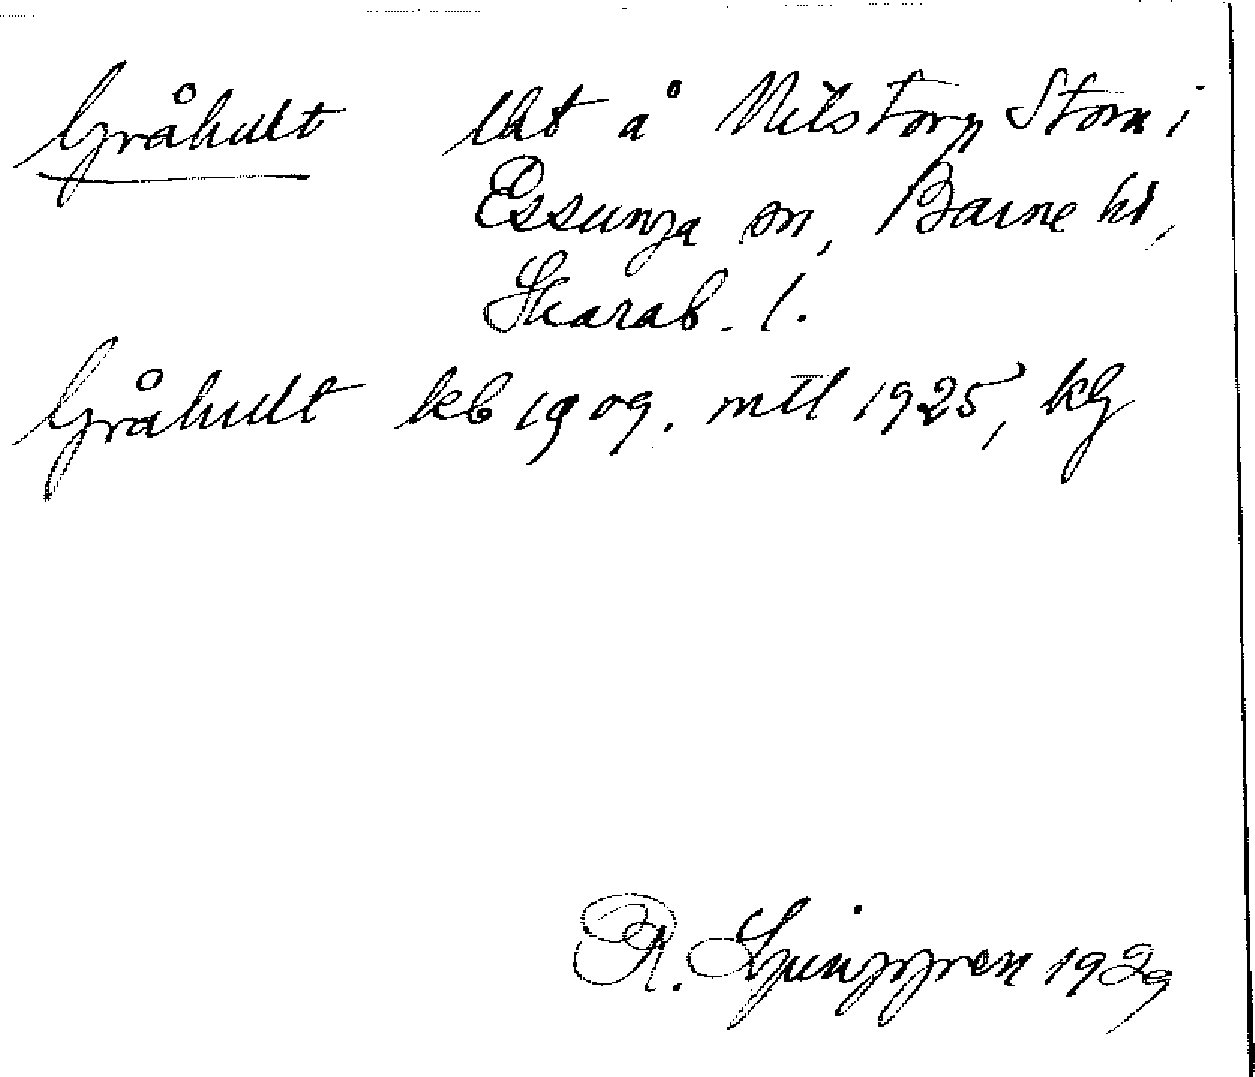 Gråhult lht å Nilstorp Stom i
Essunga sn, Barne hd,
Skarab. l.
Gråhult kb 1909. mtl 1925, kg
R. Ljunggren 1929